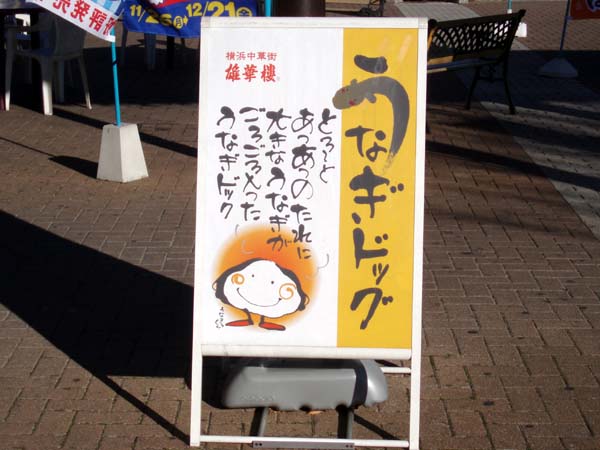 11/26月
12/21金
横浜中華街
雄華樓
うなぎドッグ
とろ〜と
あつあつのたれに
大きなうなぎが
ごろごろ入った
うなぎドック